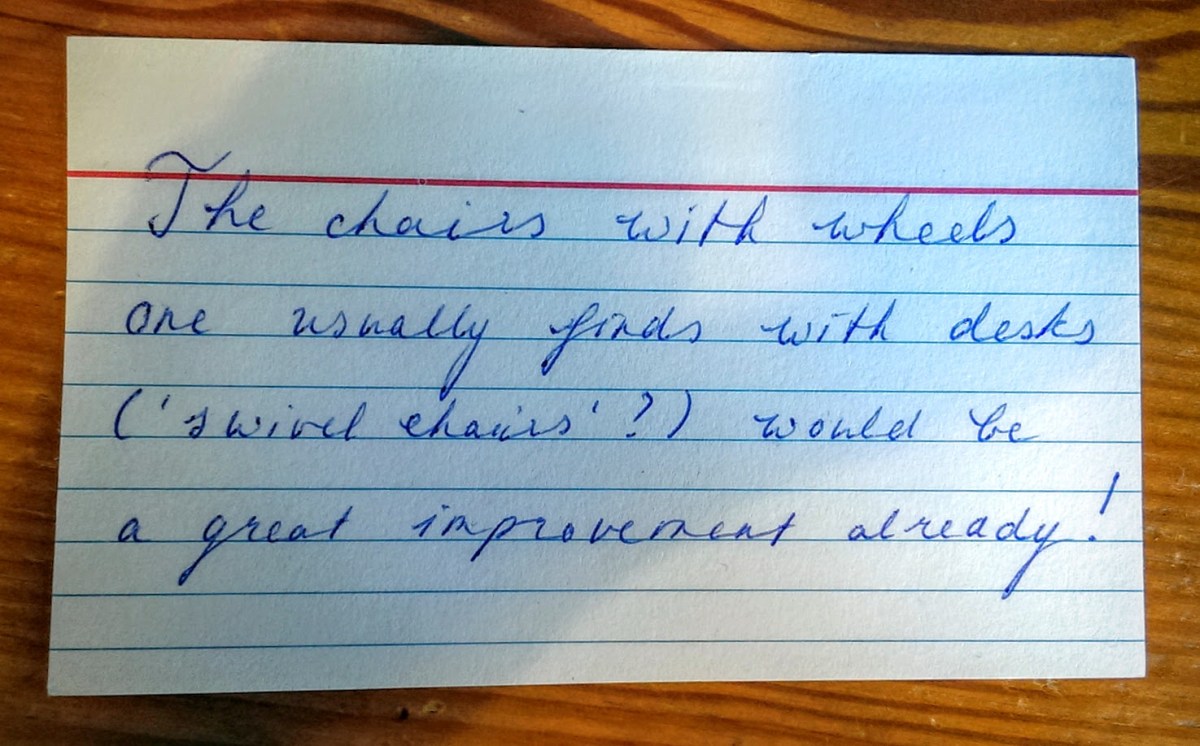 The chairs with wheels
one usually finds with desks
('swivel chairs'?) would be
a great improvement already!